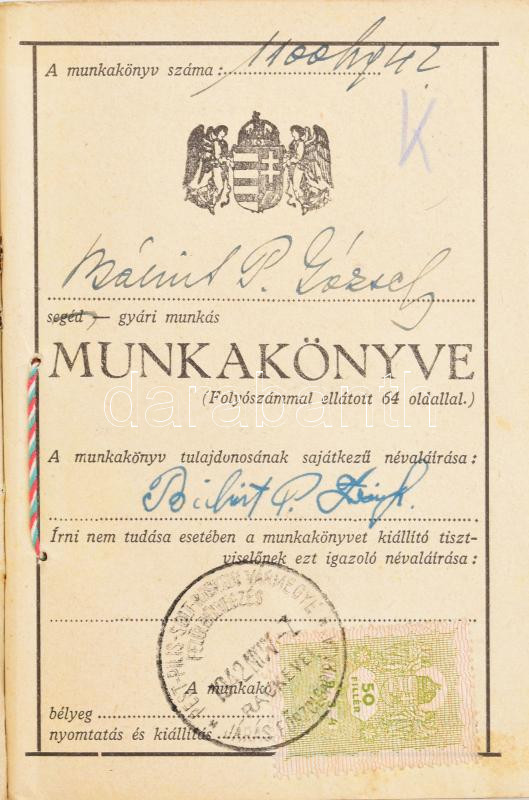 A munkakönyv száma :
K
Bálint P. József
segéd — gyári munkás
MUNKAKÖNYVE
(Folyószámmal ellátott 64 oldallal.)
darabanth
A munkakönyv tulajdonosának sajátkezű névaláírása :
Bálint P. József
Írni nem tudása esetében a munkakönyvet kiállító tiszt-
viselőnek ezt igazoló névaláírása :
PEST-PILIS-SOLT-KISKUN VÁRMEGYE
1942
RÁCKEVEI
50
FILLÉR
A munkakö
bélyeg
nyomtatás és kiállítás